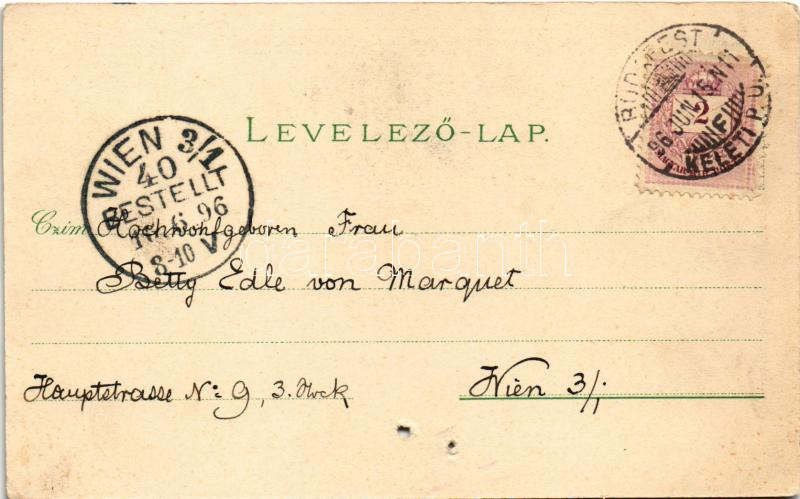 BUDAPEST
96 JUN. 15. N 11
KELETI P.U.
2
LEVELEZŐ-LAP.
WIEN 3/1
40
BESTELLT
6 96
8-10 V
Czim Hochwohlgeboren Frau
Betty Edle von Marquet
Hauptstrasse N: 9, 3. Stock
Wien 3/1
darabanth